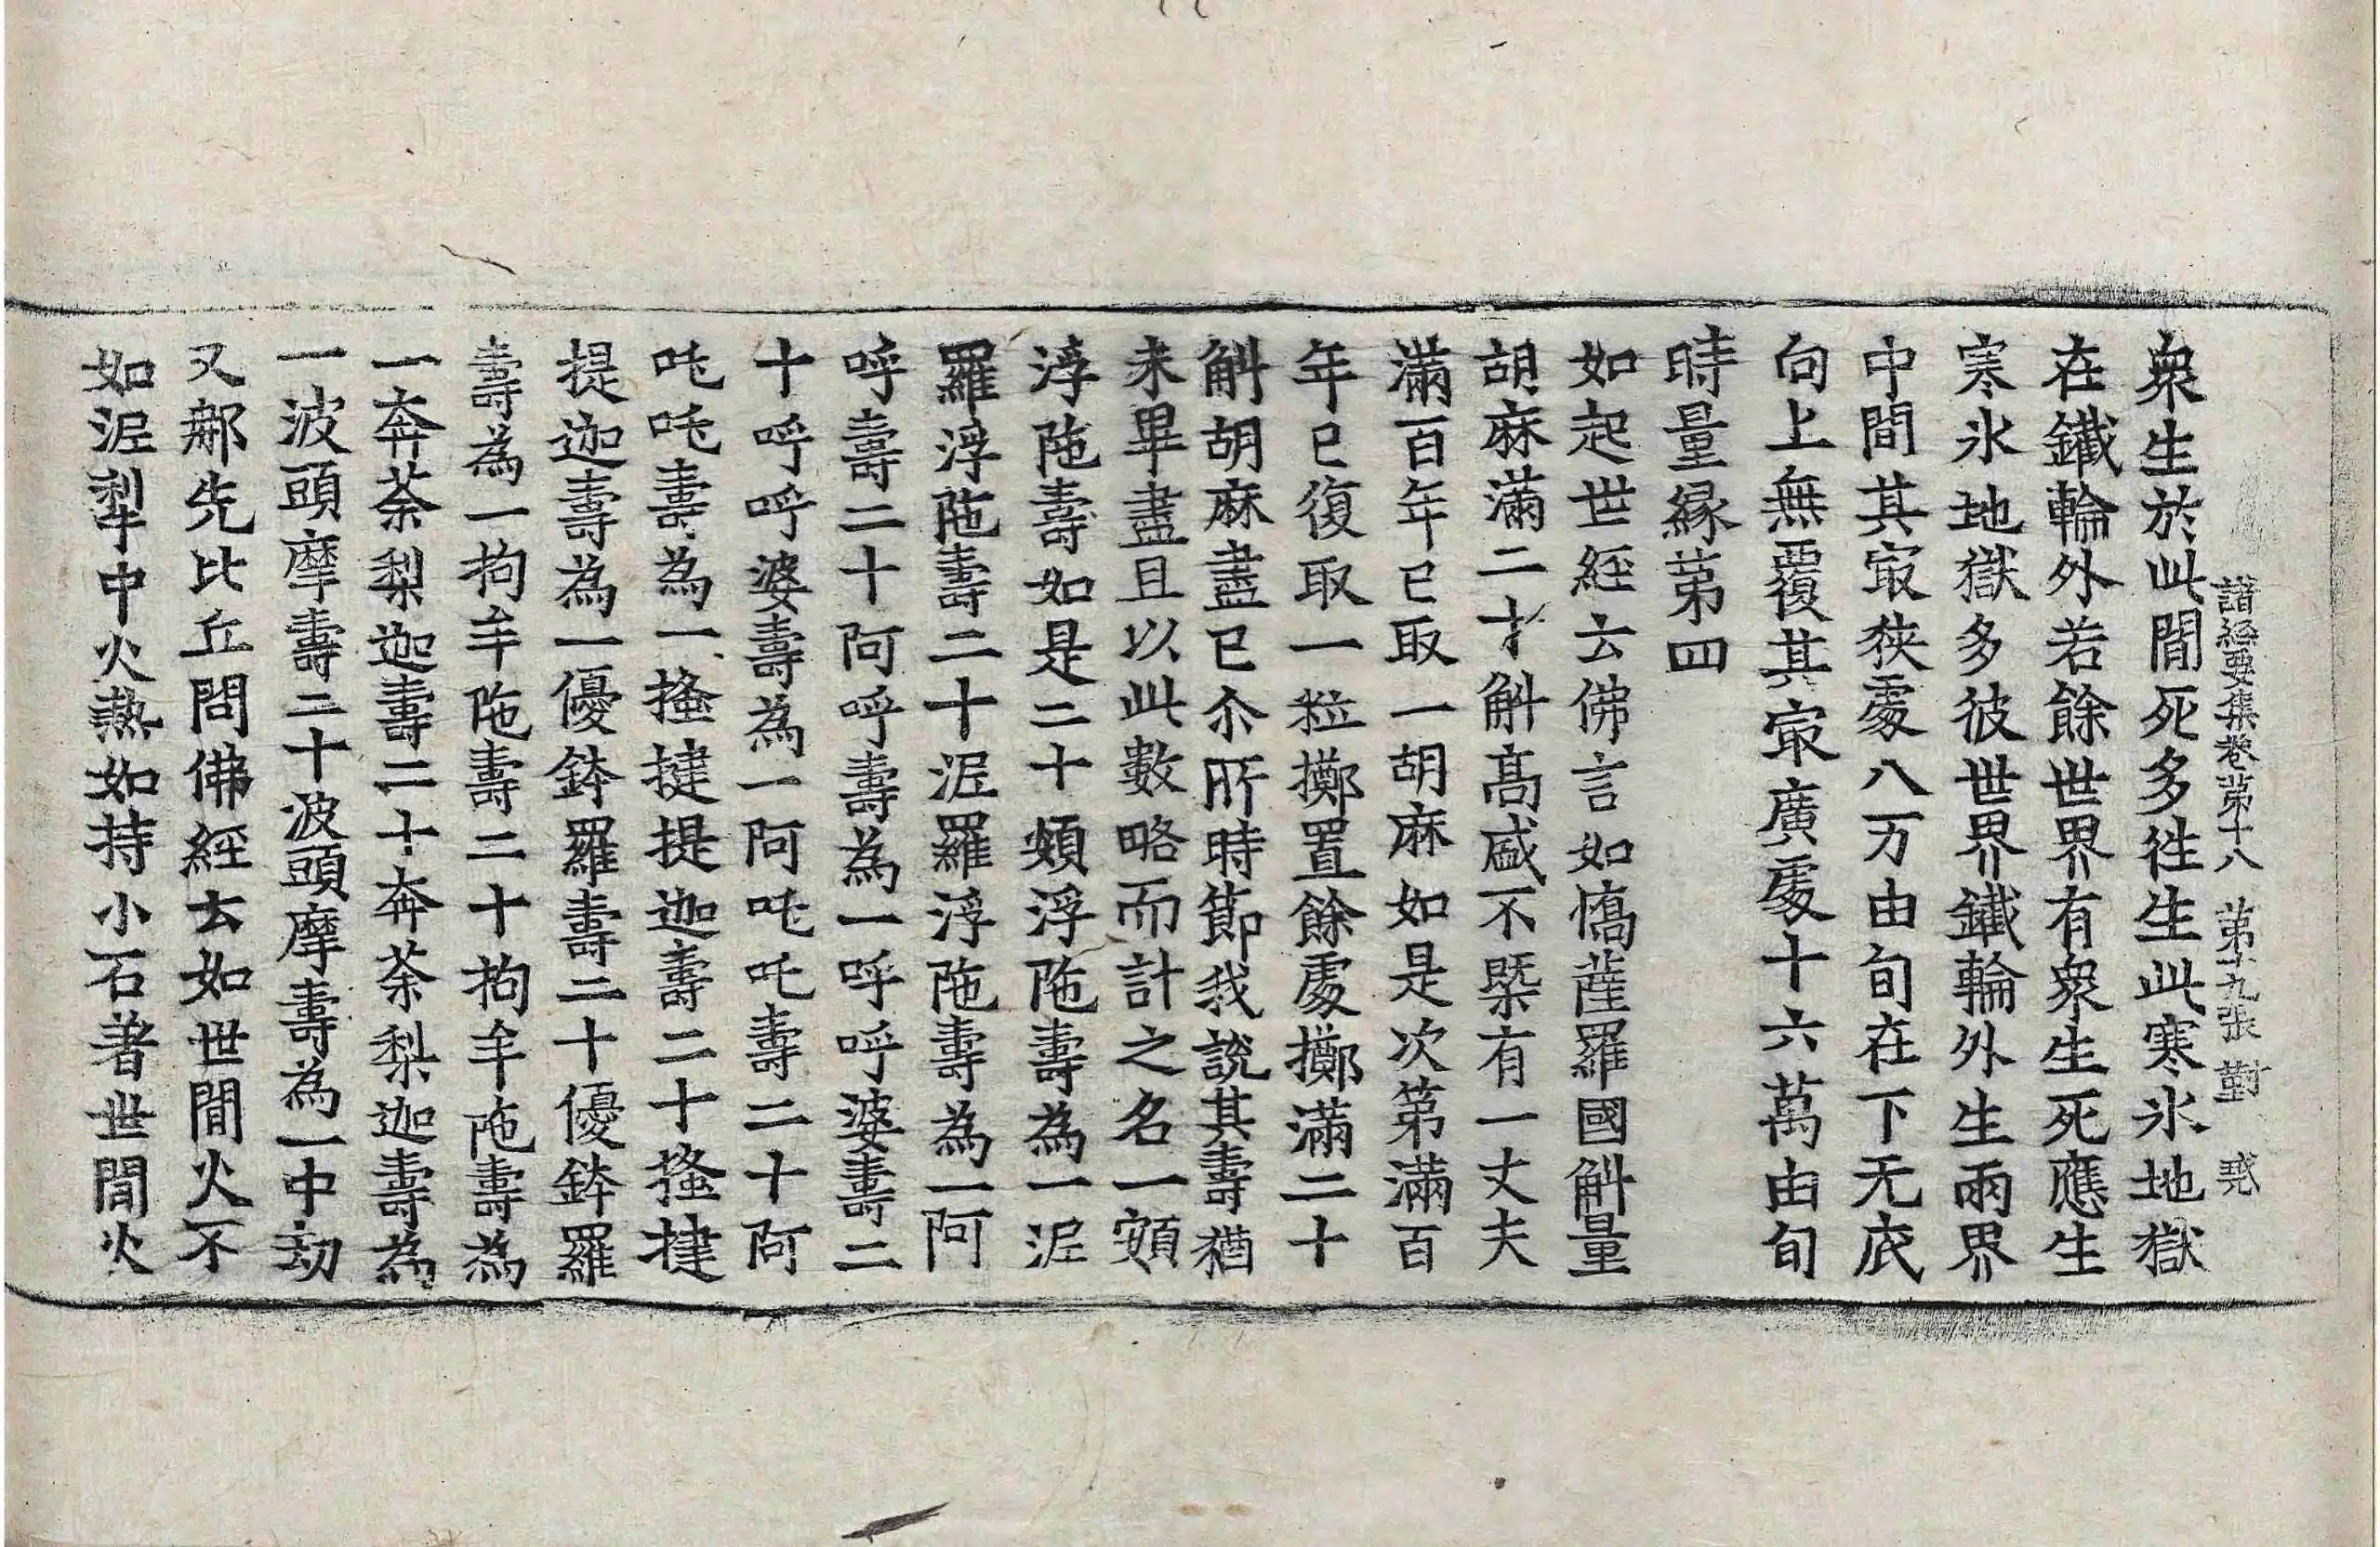 諸經要集卷苐十八　苐十九張　對
衆生於此間死多徃生此寒氷地獄
在鐵輪外若餘世界有衆生死應生
寒氷地獄多彼世界鐵輪外生兩界
中間其㝡狹䖏八万由旬在下无底
向上無覆其㝡廣䖏十六萬由旬
時量縁苐四
如起世經云佛言如憍薩羅國斛量
胡麻滿二十斛高盛不槩有一丈夫
滿百年已取一胡麻如是次第滿百
年已復取一粒擲置餘䖏擲滿二十
斛胡麻盡已尒所時節我說其壽猶
未畢盡且以此數略而計之名一頞
浮陁壽如是二十頞浮陁壽為一泥
羅浮陁壽二十泥羅浮陁壽為一阿
呼壽二十阿呼壽為一呼呼婆壽二
十呼呼婆壽為一阿吒吒壽二十阿
吒吒壽為一搔揵提迦壽二十搔揵
提迦壽為一優鉢羅壽二十優鉢羅
壽為一拘牟陁壽二十拘牟陁壽為
一奔茶梨迦壽二十奔茶梨迦壽為
一波頭摩壽二十波頭摩壽為一中劫
又𨚗先比丘問佛經云如世間火不
如泥犁中火熱如持小石著世間火